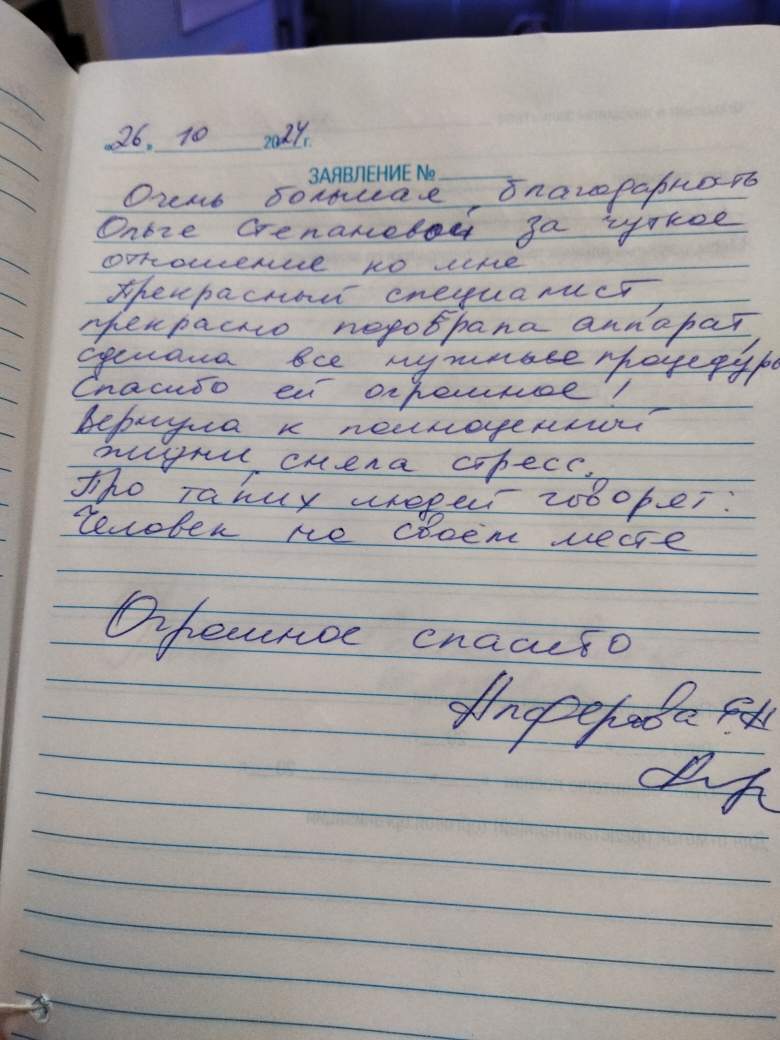 «26» 10 2024 г.
ЗАЯВЛЕНИЕ № 
Очень большая благодарность
Ольге Степановой за чуткое
отношение ко мне
Прекрасный специалист,
прекрасно подобрала аппарат,
сделала все нужные процедуры
Спасибо ей огромное!
Вернула к полноценной
жизни, сняла стресс.
Про таких людей говорят:
Человек на своём месте
Огромное спасибо